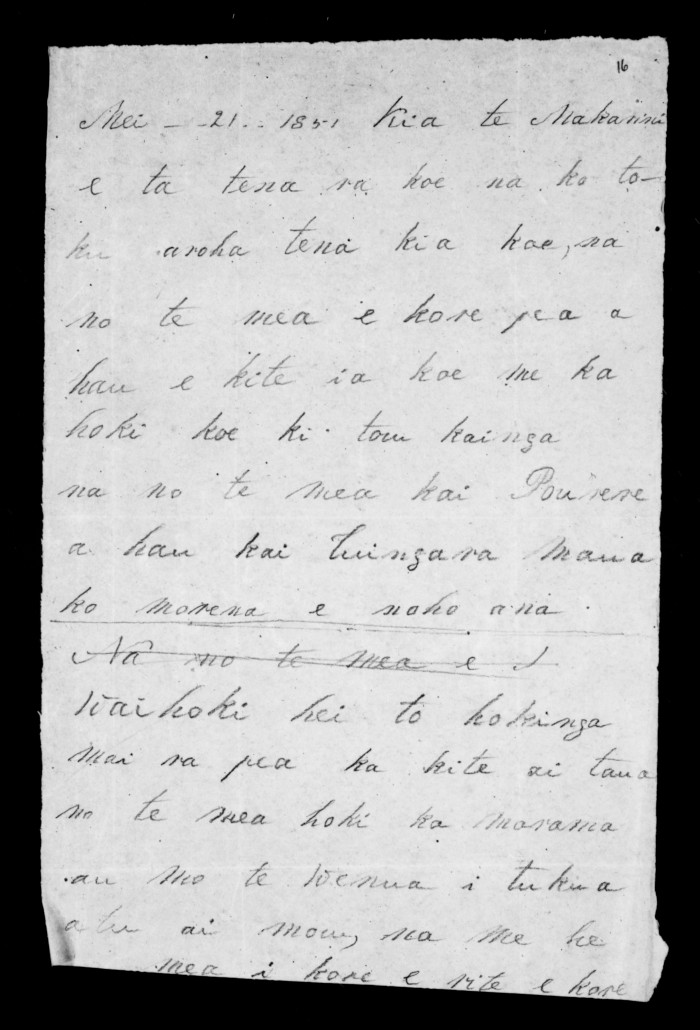 16
Mei - 21.. 1851 Kia te Makarini
e ta tena ra koe na ko to-
ku aroha tena kia koe, na
no te mea e kore pea a
hau e kite ia koe me ka
hoki koe ki tou kainga
na no te mea kai Pourere
a hau kai Tuingara maua
ko morena e noho ana
Na no te mea e
Waihoki hei to hokinga
mai ra pea ka kite ai taua
no te mea hoki ka marama
au mo te Wenua i tukua
atu ai mou, na me he
mea i kore e rite e kore